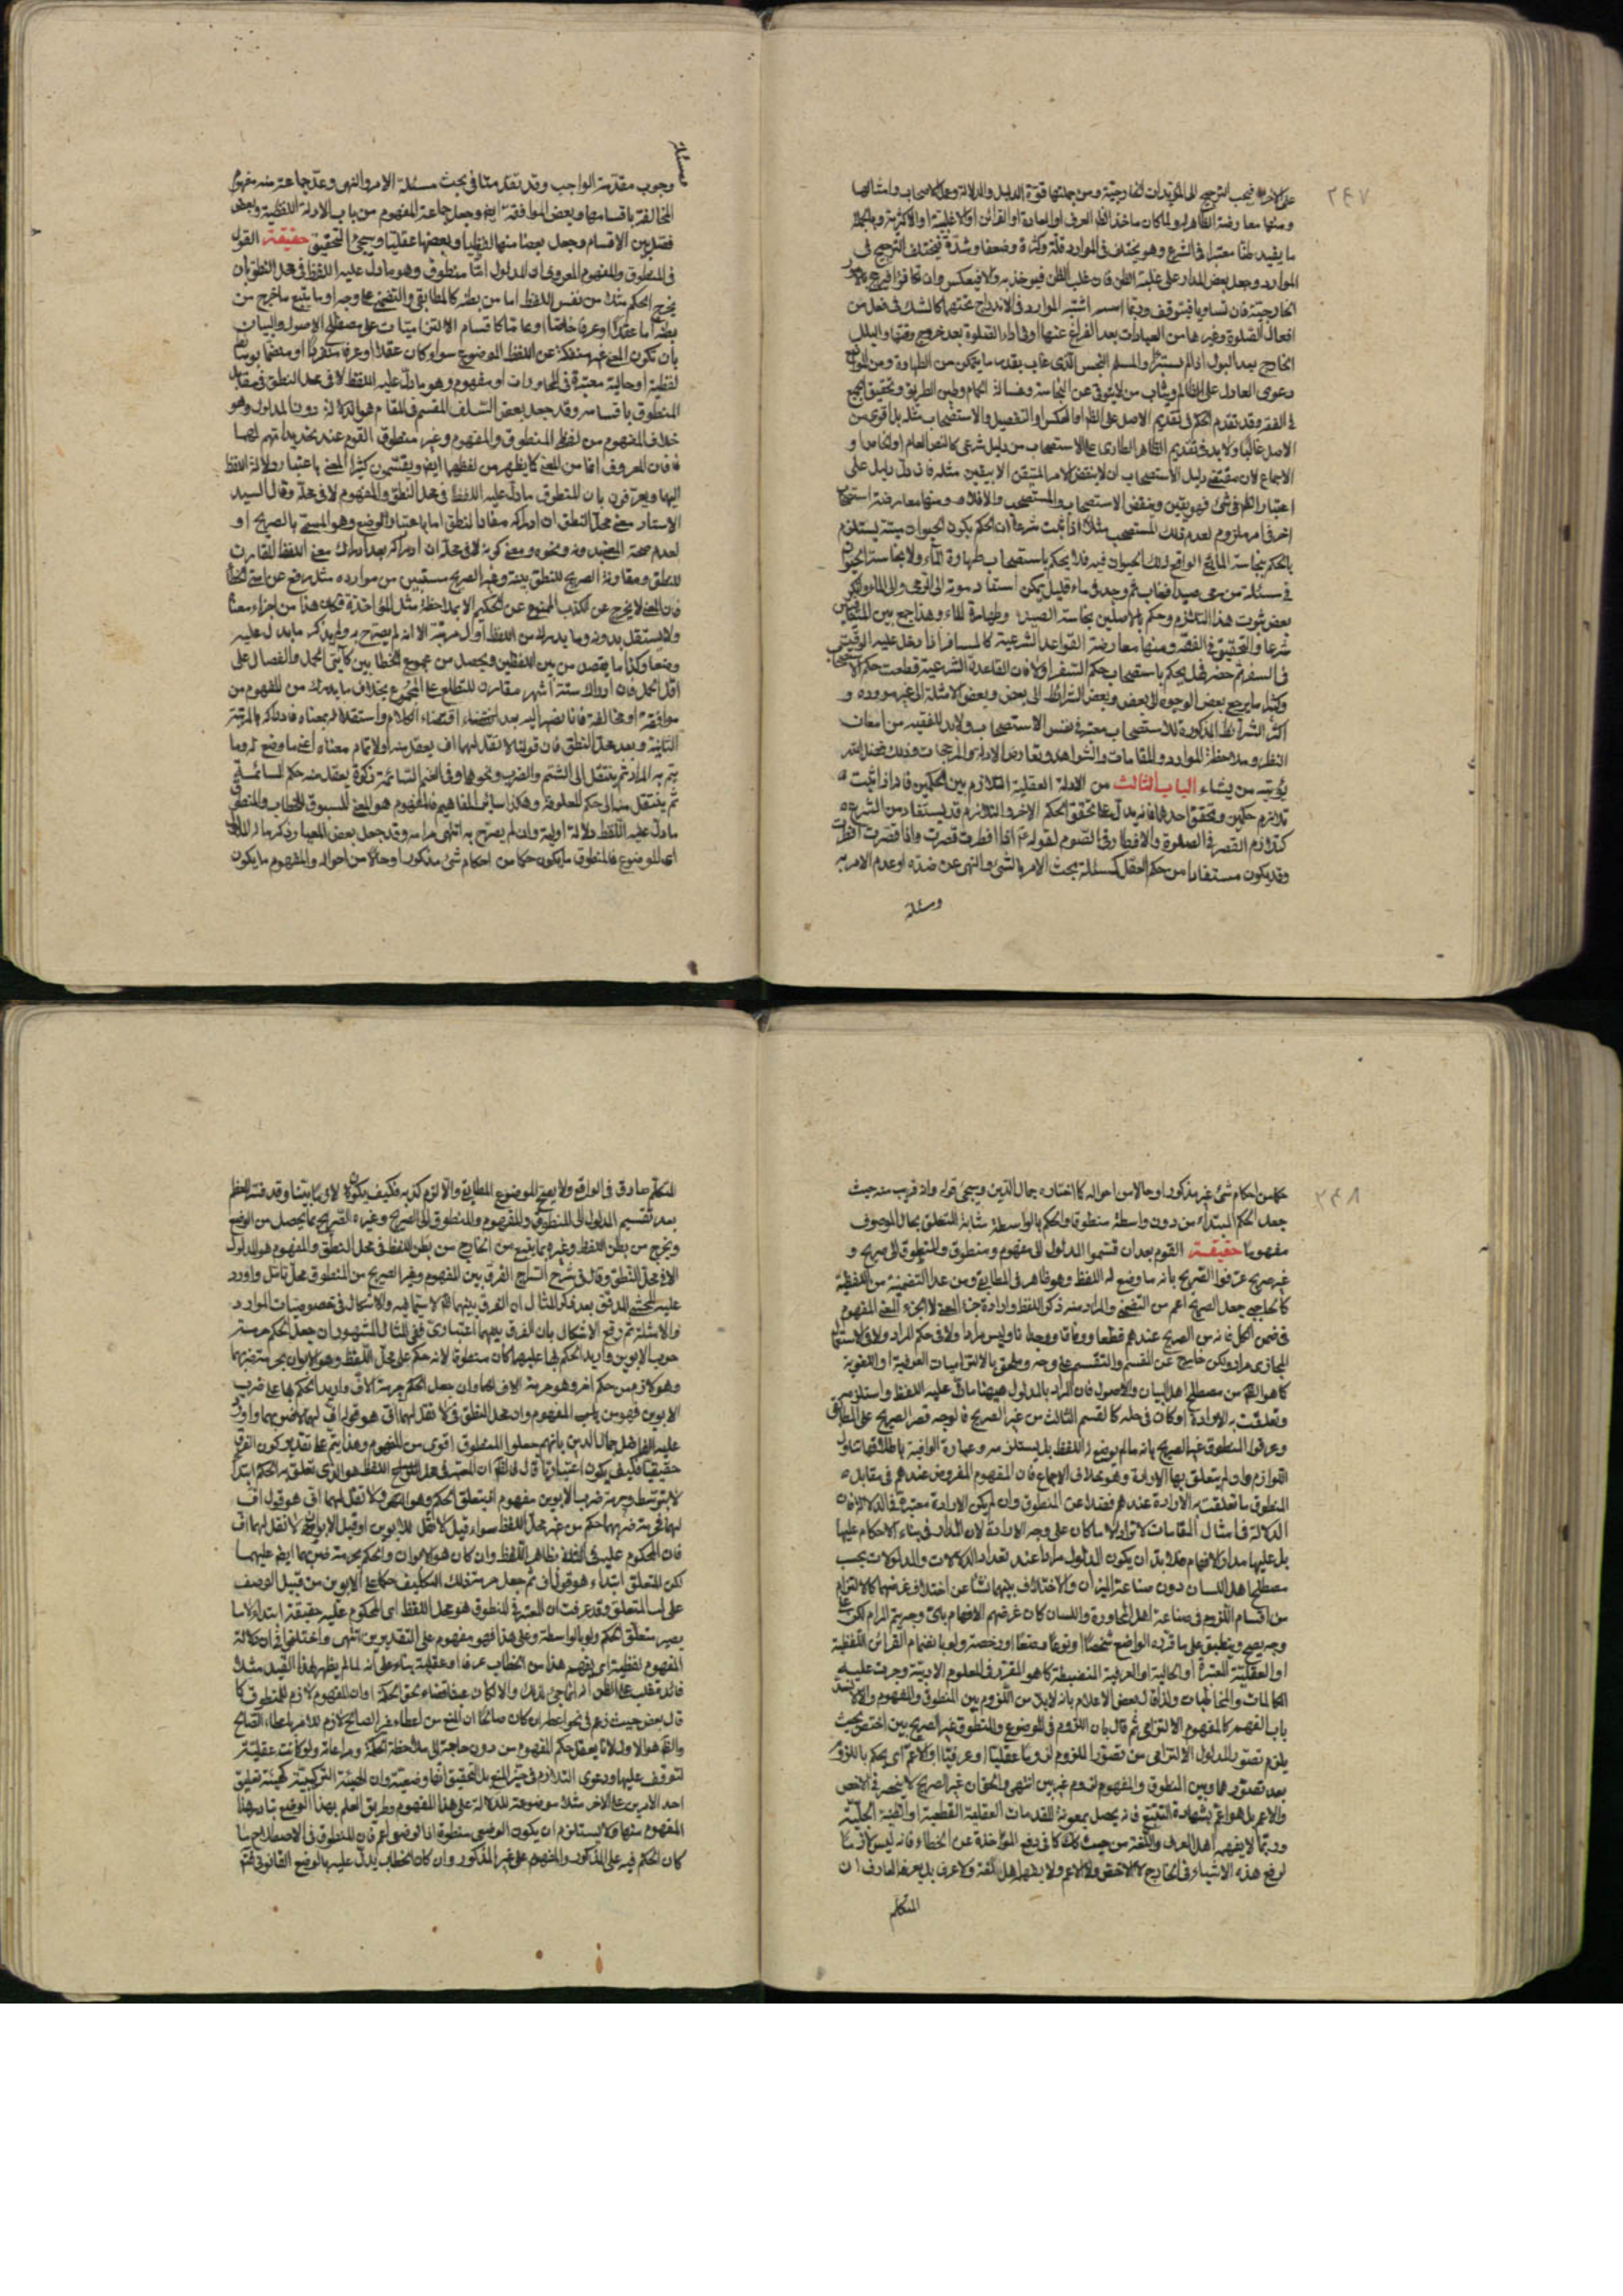 ٢٤٧
على الآخر فيجب الترجيح الى المؤيدات الخارجية ومن جملتها قوة الدليل والدلالة وعمل الاصحاب وامثالها
ومنها معارضة الظاهر ولما كان ماخذ الظاهر العرف او العادة او القرائن او الاغلبية او الاكثرية وبالجملة
ما يفيد ظنا معتبرا فى الشرع وهو يختلف فى الموارد قلة وكثرة وضعفا وشدة فيختلف الترجيح فى
الموارد وجعل بعض المدار على غلبة الظن فان غلب الظن فيوخذ به والا فيعكس وان تكافؤا فيرجح بالامور
الخارجية فان تساويا فيتوقف وربما اشتبه الموارد فى الاندراج تحتهما كالشك فى فعل من
افعال الصلوة وغيرها من العبادات بعد الفراغ عنها او فى اداء الصلوة بعد خروج وقتها والبلل
الخارج بعد البول اذا لم يستبرأ والمسلم النجس الذى غاب بقدر ما يتمكن من الطهارة ومن الموانع
دعوى العادل على الظالم وثياب من لا يتوقى عن النجاسة وغسالة الحمام وطين الطريق وتحقيق الجميع
فى الفقه وقد تقدم الحكم فى تقديم الاصل على الظاهر او العكس او التفصيل والاستصحاب مثله بل اقوى من
الاصل غالبا ولابد فى تقديم الظاهر الطارى على الاستصحاب من دليل شرعى كالنص العام او الخاص او
الاجماع لان مقتضى دليل الاستصحاب ان لا ينقض الامر المتيقن الا بيقين مثله فان دل دليل على
اعتبار الظاهر فى شئ فهو يقين وينقض الاستصحاب والمستصحب والا فلا ومنها معارضة استصحاب
اخر فى امر ملزوم لعدم ذلك المستصحب مثلا اذا ثبت شرعا ان الحكم بكون الحيوان ميتة يستلزم
الحكم بنجاسة المائع الواقع ذلك الحيوان فيه فلا يحكم باستصحاب طهارة الماء ولا بنجاسة الحيوان
فى مسئلة من رمى صيدا فغاب ثم وجد فى ماء قليل يمكن استناد موته الى الرمى والى الماء وانكر
بعض ثبوت هذا التلازم وحكم بالاصلين بنجاسة الصيد وطهارة الماء وهذا جمع بين المتنافيين
شرعا والتحقيق فى الفقه ومنها معارضة القواعد الشرعية كالمسافر اذا دخل عليه الوقت
فى السفر ثم حضر فهل يحكم باستصحاب حكم السفر اولا فان القاعدة الشرعية قطعت حكم الاستصحاب
وكثيرا ما يرجع بعض الوجوه الى بعض وبعض الشرائط الى بعض وبعض الامثلة الى غير مورده و
اكثر الشرائط المذكورة للاستصحاب معتبرة فى نفس الاستصحاب ولابد للفقيه من امعان
النظر وملاحظة الموارد والمقامات والشواهد وتعارض الادلة والمرجحات وذلك فضل الله
يؤتيه من يشاء الباب الثالث من الادلة العقلية التلازم بين الحكمين فانه اذا ثبت
تلازم حكمين وتحقق احدهما فانه يدل على تحقق الحكم الآخر والتلازم قد يستفاد من الشرع
كتلازم القصر فى الصلوة والافطار فى الصوم لقوله ع اذا افطرت قصرت واذا قصرت افطرت
وقد يكون مستفادا من حكم العقل كمسئلة بحث الامر بالشئ والنهى عن ضده او عدم الامر به
ومسئلة
مسئلة
وجوب مقدمة الواجب وقد تقدمتا فى بحث مسئلة الامر والنهى وعد جماعة منه مفهوم
المخالفة باقسامها وبعض الموافقة ايضا وجعل جماعة المفهوم من باب الادلة اللفظية وبعض
فصل بين الاقسام وجعل بعضا منها لفظيا وبعضها عقليا وسيجئ التحقيق حقيقة القول
فى المنطوق والمفهوم المعروف ان المدلول اما منطوق وهو ما دل عليه اللفظ فى محل النطق بان
يخرج الحكم من نفس اللفظ اما من بطنه كالمطابقى والتضمنى على وجه او ما يتبع ما خرج من
بطنه اما عقلا او عرفا خاصا او عاما كاقسام الالتزاميات على مصطلح الاصول والبيان
بان تكون المعنى غير منفكة عن اللفظ الموضوع سواء كان عقلا او عرفا منفردا او منضما بوسائط
لفظية او حالية معتبرة فى المحاورات او مفهوم وهو ما دل عليه اللفظ لا فى محل النطق فى مقابل
المنطوق باقسامه وقد جعل بعض السلف المقسم فى المقام هو الدلالة دون المدلول وهو
خلاف المفهوم من لفظى المنطوق والمفهوم وغير منطوق القوم عند تحديداتهم لهما
فان المعروف انها من المعنى كما يظهر من لفظهما ايضا ويقسمون كثيرا المعنى باعتبار دلالة اللفظ
اليها ويعرفون بان المنطوق ما دل عليه اللفظ فى محل النطق والمفهوم لا فى محله وقال السيد
الاستاد معنى محل النطق ان ادراكه مفاد النطق اما باعتبار الوضع وهو المسمى بالصريح او
لعدم صحة المعنى بدونه ونحوه ومعنى كونه لا فى محله ان ادراكه بعد ادراك معنى اللفظ المقارن
للنطق ومقارنة الصريح للنطق بينة وغير الصريح مستبين من موارده مثل رفع عن امتى الخطأ
فان المعنى لا يخرج عن الكذب الممنوع عن الحكيم الا بملاحظة مثل المؤاخذة فكان هذا من اجزاء معناه
ولا يستقل بدونه وما يدرك من اللفظ اول مرتبة الا انه لم يصرح به ولم يذكر ما يدل عليه
وضعا وكذا ما يقصد من بين اللفظين ويحصل من مجموع الخطابين كآيتى الحمل والفصال على
اقل الحمل فان ادراك ستة اشهر مقارن للتطلع على المجموع بخلاف ما يدرك من المفهوم من
موافقة او مخالفة فانا نصير اليه بعد انقضاء اقتضاء الكلام واستقلاله بمعناه فادراكه بالمرتبة
الثانية وبعد محل النطق فان قولنا لا تقل لهما اف يعقل منه اولا تمام معناه اعنى ما وضع له وما
يتم به المراد ثم ينتقل الى الشتم والضرب ونحوهما وفى الغنم السائمة زكوة يعقل منه حكم السائمة
ثم ينتقل منه الى حكم المعلوفة وهكذا سائر المفاهيم فالمفهوم هو المعنى المسبوق للخطاب والمنطوق
ما دل عليه اللفظ دلالة اولية وان لم يصرح به انتهى مرامه وقد جعل بعض المعيار ذكر ما له الدلالة
اى الموضوع فالمنطوق ما يكون حكما من احكام شئ مذكور او حالا من احواله والمفهوم ما يكون
٢٤٨
حكما من احكام شئ غير مذكور او حالا من احواله كما اختاره جمال الدين وسيجئ قوله وانه قريب منه حيث
جعل الحكم المبتدأ من دون واسطة منطوقا والحكم بالواسطة بمثابة المتعلق بحال الموصوف
مفهوما حقيقة القوم بعد ان قسموا المدلول الى مفهوم ومنطوق والمنطوق الى صريح و
غير صريح عرفوا الصريح بانه ما وضع له اللفظ وهو ظاهر فى المطابقة ومن عد التضمنية من اللفظية
كالحاجبى جعل الصريح اعم من التضمنى والمراد منه ذكر اللفظ وارادة جزء المعنى لا الجزء المعنى المفهوم
فى ضمن الكل فانه من الصريح عندهم قطعا
المجازى مراد ولكن خارج عن المقسم والتقسيم على وجه وملحق بالالتزاميات العرفية او اللغوية
كما هو الظاهر من مصطلح اهل البيان والاصول فان المراد بالمدلول هيهنا ما دل عليه اللفظ واستلزمه
وتعلقت به الارادة او كان فى حكمه كالقسم الثالث من غير الصريح فالوجه قصر الصريح على المطابق
وعرفوا المنطوق غير الصريح بانه ما لم يوضع له اللفظ بل يستلزمه وعبارة الوافية باطلاقها تتناول
اللوازم وان لم يتعلق بها الارادة وهو بخلاف الاجماع فان المفهوم المفروض عندهم فى مقابل
المنطوق ما تعلقت به الارادة عندهم فضلا عن المنطوق وان لم يكن الارادة معتبرة فى الدلالة فان
الدلالة فى امثال المقامات لا تراد الا ما كان على وجه الارادة لان المدار فى بناء الاحكام عليها
بل عليها مدار الافهام فلابد ان يكون المدلول مرادا عند تعداد الدلالات والمدلولات بحسب
مصطلح اهل اللسان دون صناعة الميزان والاختلاف بينهما نشأ عن اختلاف غرضهما كالالتزام
من اقسام اللزوم فى صناعة اهل المحاورة واللسان كان غرضهم الافهام باى وجه يتم المرام لكن على
وجه يصح وينطبق على ما قرره الواضع شخصا او نوعا وضعا او رخصة ولو بانضمام القرائن اللفظية
او العقلية المعتبرة او الحالية او العرفية المنضبطة كما هو المقرر فى العلوم الادبية وجرت عليه
المكالمات والمخاطبات ولذا قال بعض الاعلام بانه لابد من اللزوم بين المنطوق والمفهوم والا لانسد
باب الفهم كالمفهوم الالتزامى ثم قال بان اللزوم فى الموضوع والمنطوق غير الصريح بين اخص بحيث
يلزم تصور المدلول الالتزامى من تصور الملزوم لزوما عقليا او عرفيا او الاعم اى يحكم باللزوم
بعد تصورهما وبين المنطوق والمفهوم لزوم غير بين انتهى والحق ان غير الصريح لا ينحصر فى الاخص
والاعم بل هو اعم بشهادة التتبع فانه يحصل بمعونة المقدمات العقلية القطعية او الظنية الجلية
وربما لا يفهمه اهل العرف واللغة من حيث كذلك كما فى رفع المؤاخذة عن الخطاء فانه ليس لازما
لرفع هذه الاشياء فى الخارج لا الاخص ولا الاعم ولا يفهم اهل لغة ولا عرف بل يعرفه العارف ان
المتكلم
المتكلم صادق فى الواقع ولا يصح الموضوع المطابق والا لزم كذبه فكيف يكون لازما بينا وقد فسر العظم
بعد تقسيم المدلول الى المنطوق والمفهوم والمنطوق الى الصريح وغيره الصريح بما يحصل من الوضع
ويخرج من بطن اللفظ وغيره بما يتبع من الخارج من بطن اللفظ فى محل النطق والمفهوم هو المدلول
لا فى محل النطق وقال فى شرح الشرح الفرق بين المفهوم وغير الصريح من المنطوق محل تامل واورد
عليه المحشى المدقق بعد ذكر المثال ان الفرق بينهما مما لا شبهة فيه والاشكال فى خصوصيات الموارد
والامثلة ثم رفع الاشكال بان الفرق بينهما اعتبارى ففى المثال المشهور ان جعل الحكم حرمة
ضرب الابوين واريد الحكم بها عليهما كان منطوقا لانه حكم على محل اللفظ وهو الابوان بحرمة ضربهما
وهو لازم من حكم اخر وهو حرمة الاف لهما وان جعل الحكم حرمة الاف واريد الحكم بها على ضرب
الابوين فهو من باب المفهوم وان محل النطق فى لا تقل لهما اف هو قول اف لهما لا ضربهما واورد
عليه الفاضل جمال الدين بانهم جعلوا المنطوق اقوى من المفهوم وهذا يتم على تقدير كون الفرق
حقيقيا فكيف يكون اعتباريا ثم قال فالظاهر ان المعتبر فى محل اللفظ هو الذى تعلق به الحكم ابتداء
لا بتوسط وحرمة ضرب الابوين مفهوم اذ متعلق الحكم وهو النهى فى لا تقل لهما اف هو قول اف
لهما فحرمة ضربهما حكم من غير محل اللفظ سواء قيل لا تقل للابوين او قيل الابوان لا تقل لهما اف
فان المحكوم عليه فى اللفظ بظاهر اللفظ وان كان هو الابوان والحكم بحرمة ضربهما ايضا عليهما
لكن المتعلق ابتداء هو قول اف ثم جعل حرمة ذلك التكليف حكما على الابوين من قبيل الوصف
على لسان المتعلق وقد عرفت ان المعتبر فى المنطوق هو محل اللفظ اى المحكوم عليه حقيقة ابتداء لا ما
يصير متعلق الحكم ولو بالواسطة وعلى هذا فهو مفهوم على التقديرين انتهى واختلفوا فى ان دلالة
المفهوم لفظية اى يفهم هذا من الخطاب عرفا او عقلية بناء على انه لما لم يظهر لهذا القيد مثلا
فائدة غلب على الظن انه انما جئ لذلك والا لكان عبثا قضاء لحق الحكمة او ان المفهوم لازم للمنطوق كما
قال بعض حيث زعم فى نحو اعطه ان كان صالحا ان المنع من اعطاء غير الصالح لازم للامر باعطاء الصالح
والظاهر هو الاول لانا نعقل حكم المفهوم من دون حاجة الى ملاحظة الحكمة ومراعاته ولو كانت عقلية
لتوقف عليها ودعوى التلازم فى حيز المنع بل التحقيق انها وضعية وان الهيئة التركيبية كهيئة تعليق
احد الامرين على الاخر مثلا موضوعة للدلالة على هذا المفهوم وطريق العلم بهذا الوضع تبادر هذا
المفهوم منها ولا يستلزم ان يكون الوضعى منطوقا اذ الوضعى اعم فان المنطوق فى الاصطلاح ما
كان الحكم فيه على المذكور والمفهوم على غير المذكور وان كان الخطاب يدل عليها بالوضع القانونى فتم